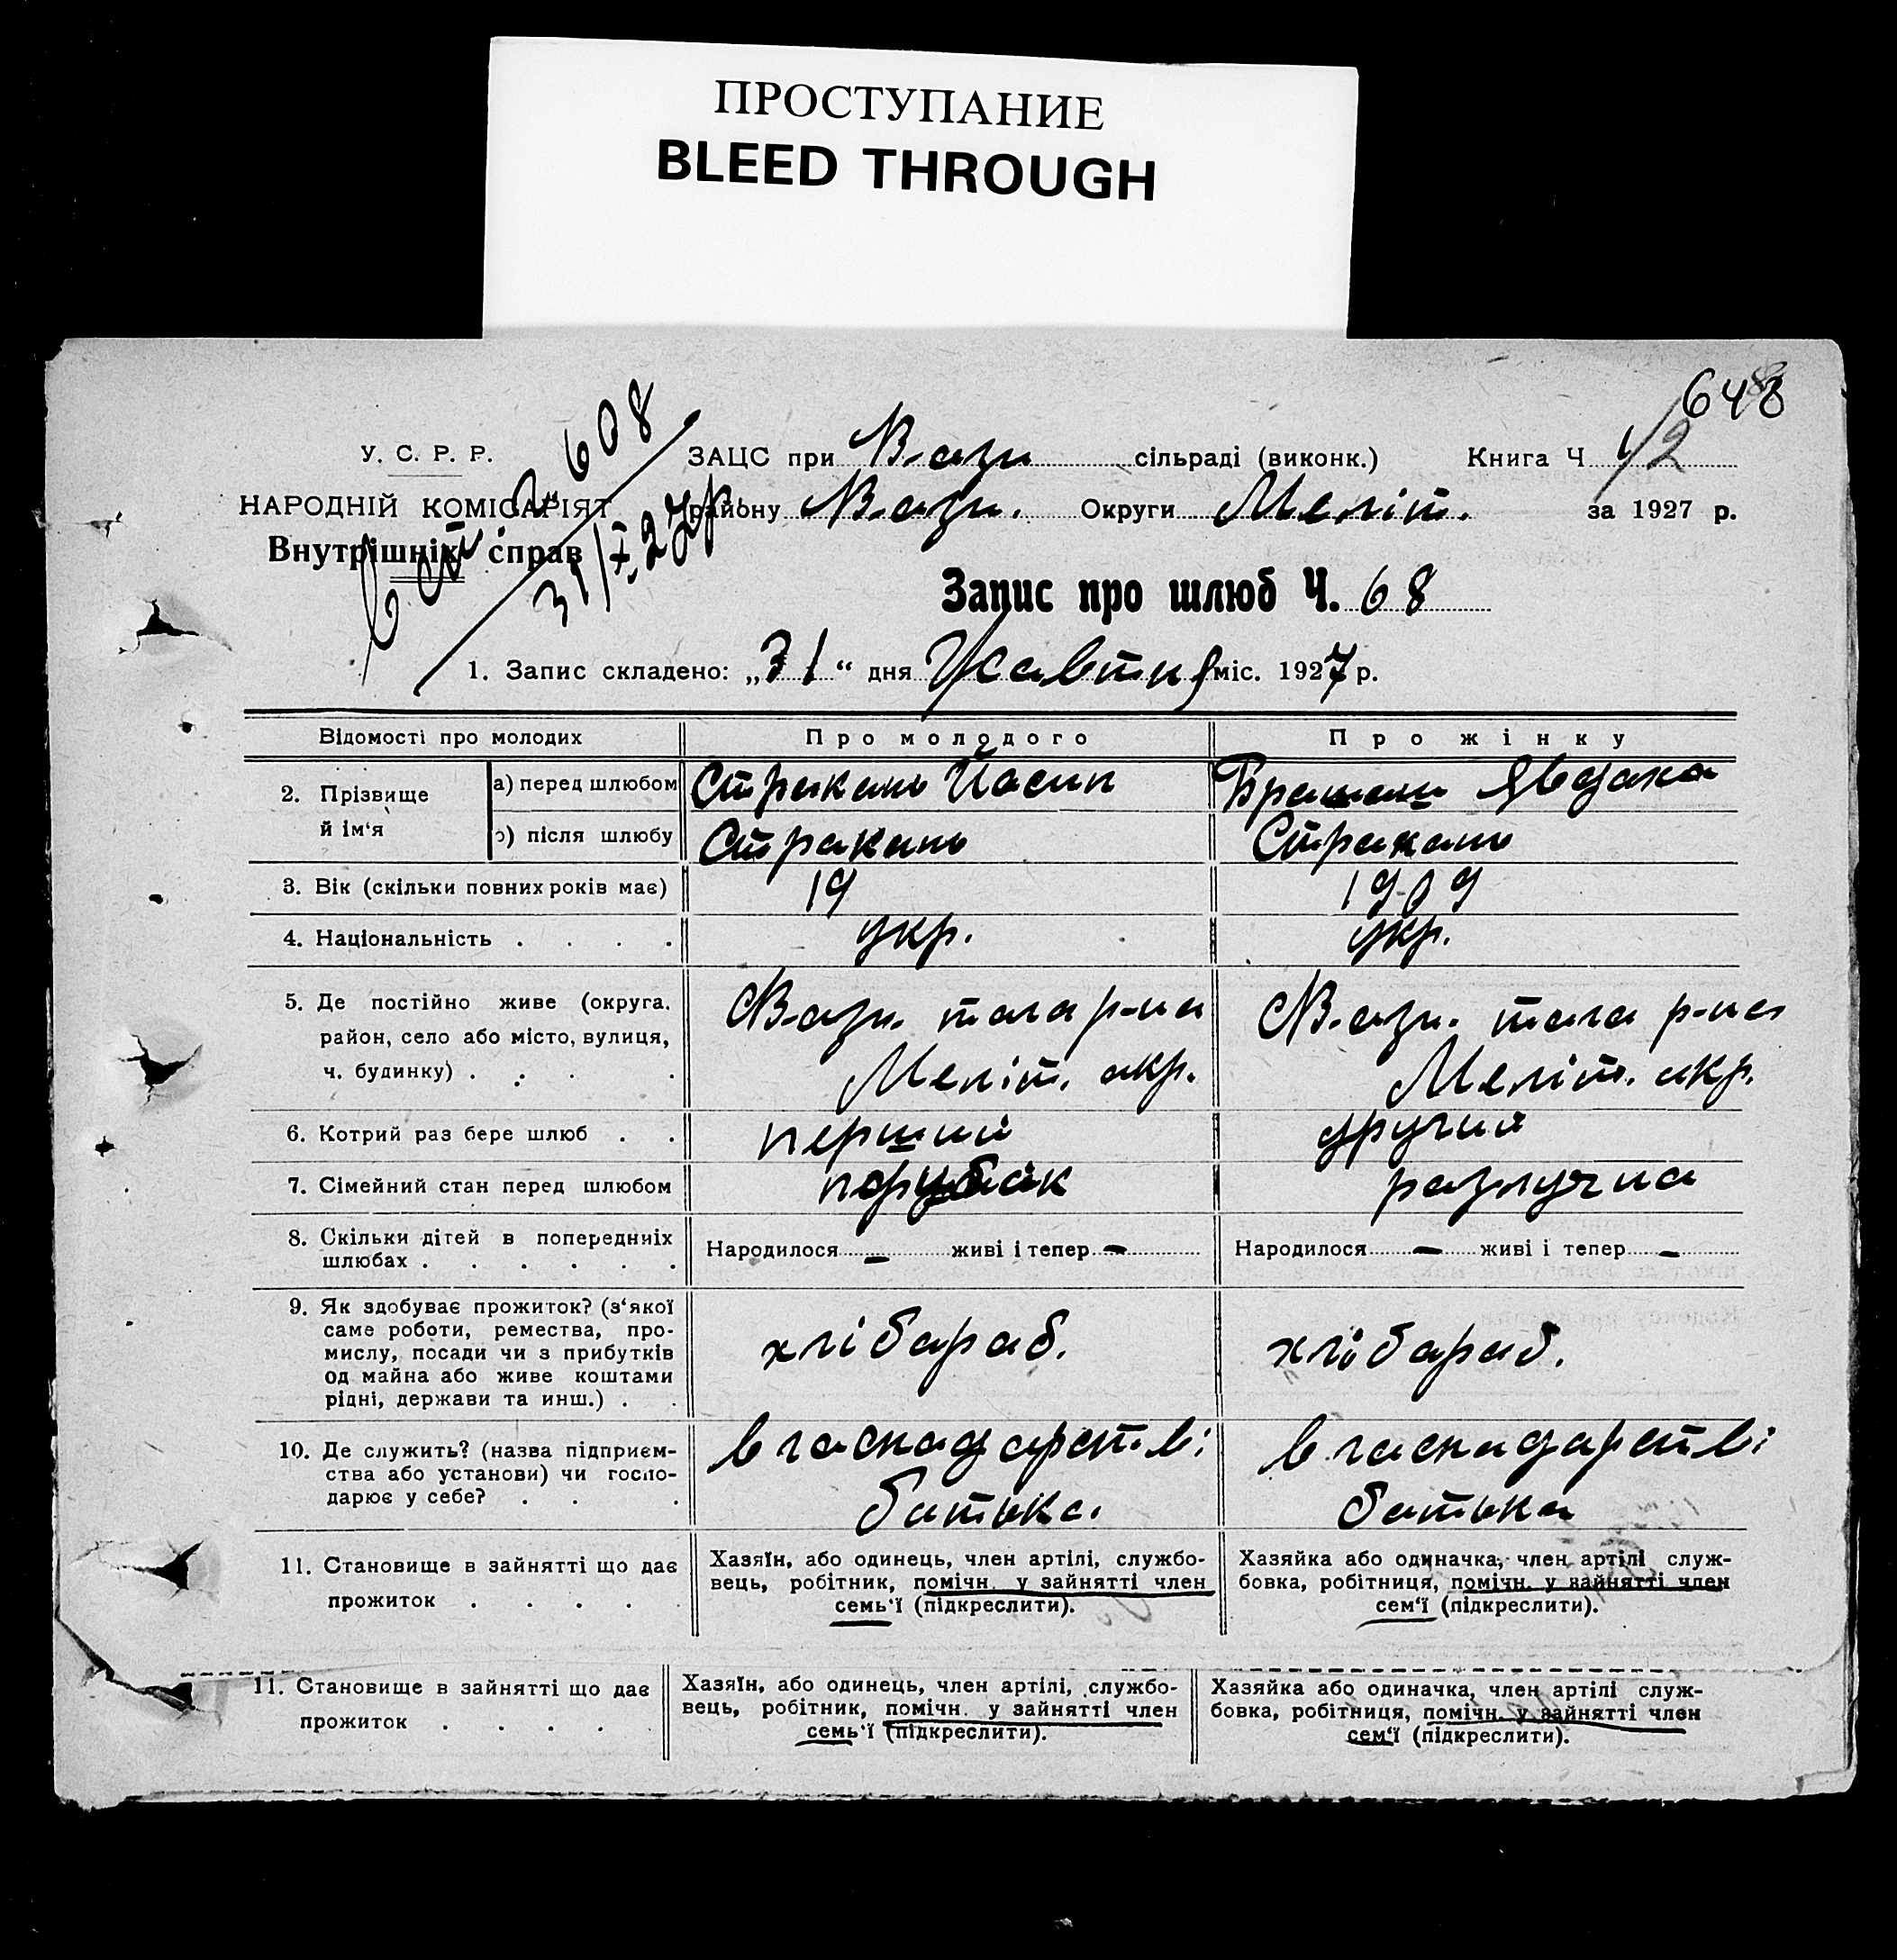 ПРОСТУПАНИЕ
BLEED THROUGH
648
У. С. Р. Р.
НАРОДНІЙ КОМІСАРІЯТ
Внутрішніх справ
608
31/X 27 р.
ЗАЦС при В.-Вази сільраді (виконк.) Книга Ч 1/2
району В.-Вази. Округи Меліт. за 1927 р.
Запис про шлюб Ч. 68
1. Запис складено: „31“ дня Жавтня міс. 1927 р.
Відомості про молодих Про молодого Про жінку
2. Прізвище й ім‘я
а) перед шлюбом Стракань Йосип Явдаха
б) після шлюбу Стракань Стракань
3. Вік (скільки повних років має) 19 1909
4. Національність . . . . укр. укр.
5. Де постійно живе (округа, район, село або місто, вулиця, ч. будинку) . . . .
тага р-на
Меліт. акр.
тага р-на
Меліт. акр.
6. Котрий раз бере шлюб . . перший другий
7. Сімейний стан перед шлюбом порубак разлучна
8. Скільки дітей в попередниіх шлюбах . . . . . .
Народилося — живі і тепер — Народилося — живі і тепер —
9. Як здобуває прожиток? (з‘якої
саме роботи, ремества, про-
мислу, посади чи з прибутків
од майна або живе коштами
рідні, держави та инш.) . .
хлібараб. хлібараб.
10. Де служить? (назва підприєм-
ства або установи) чи госпо-
дарює у себе? . . .
в гаспадарстві
батька.
в гаспадарстві
батька
11. Становище в зайнятті що дає
прожиток . . . . .
Хазяїн, або одинець, член артілі, службо-
вець, робітник, помічн. у зайнятті член
семь‘ї (підкреслити).
Хазяйка або одиначка, член артілі служ-
бовка, робітниця, помічн. у зайнятті член
сем‘ї (підкреслити).
11. Становище в зайнятті що дає
прожиток . . . . .
Хазяїн, або одинець, член артілі, службо-
вець, робітник, помічн. у зайнятті член
семь‘ї (підкреслити).
Хазяйка або одиначка, член артілі служ-
бовка, робітниця, помічн. у зайнятті член
сем‘ї (підкреслити).